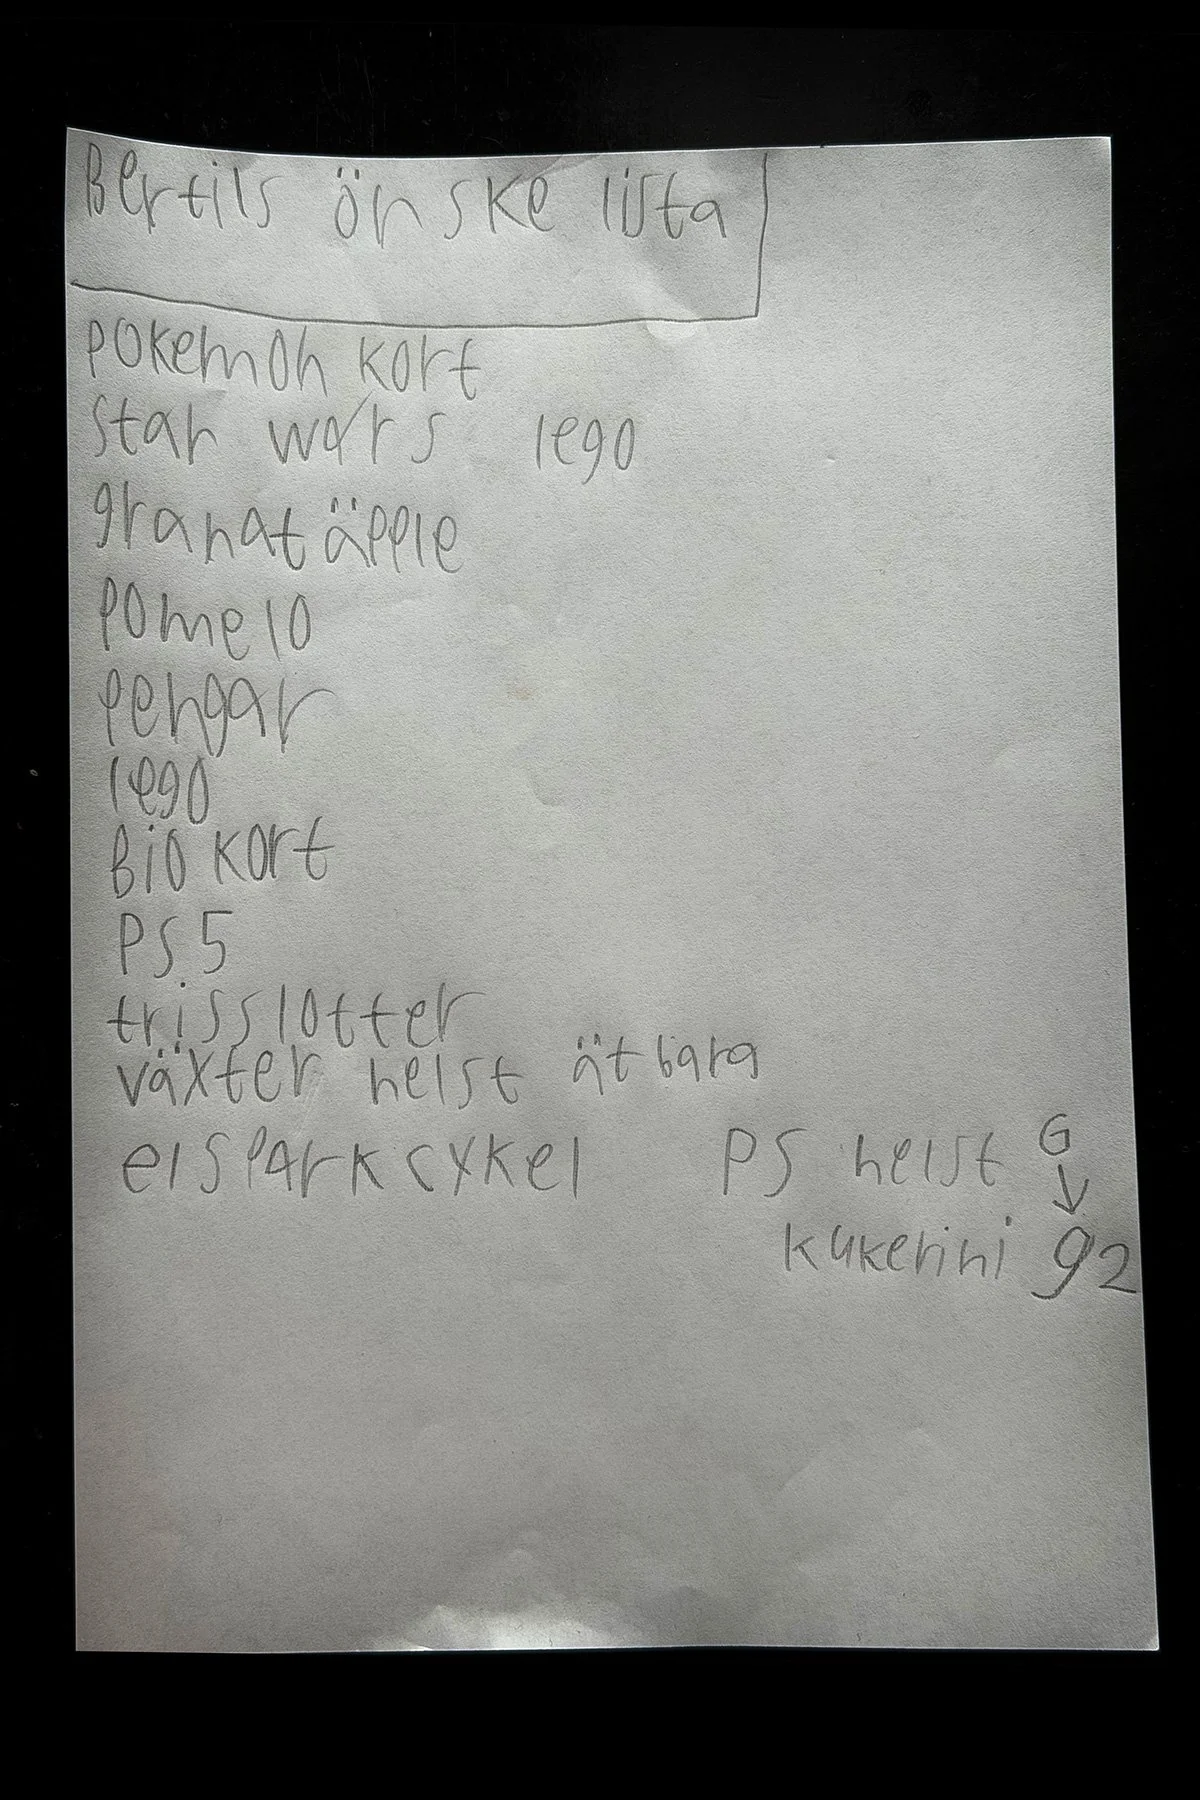 Bertils önske lista
pokemon kort
star wars lego
granat äpple
pomelo
pengar
lego
Bio kort
PS5
trisslotter
växter helst ätbara
elsparkcykel PS helst G
↓
kukerini g2